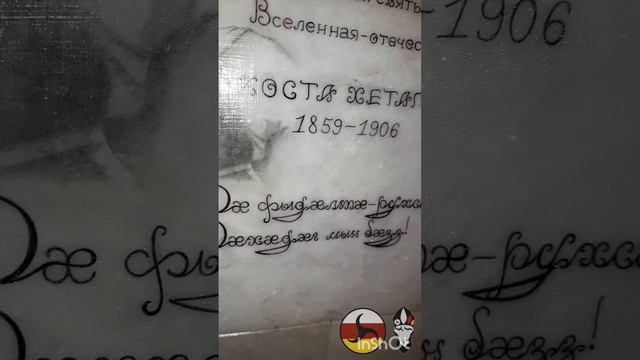 святы
Вселенная-отечес
КОСТА ХЕТАГ
1859-1906
Дæ фыдæлтæ-рухс
Дæхæдæг мын бæзз!
-1906
InShO